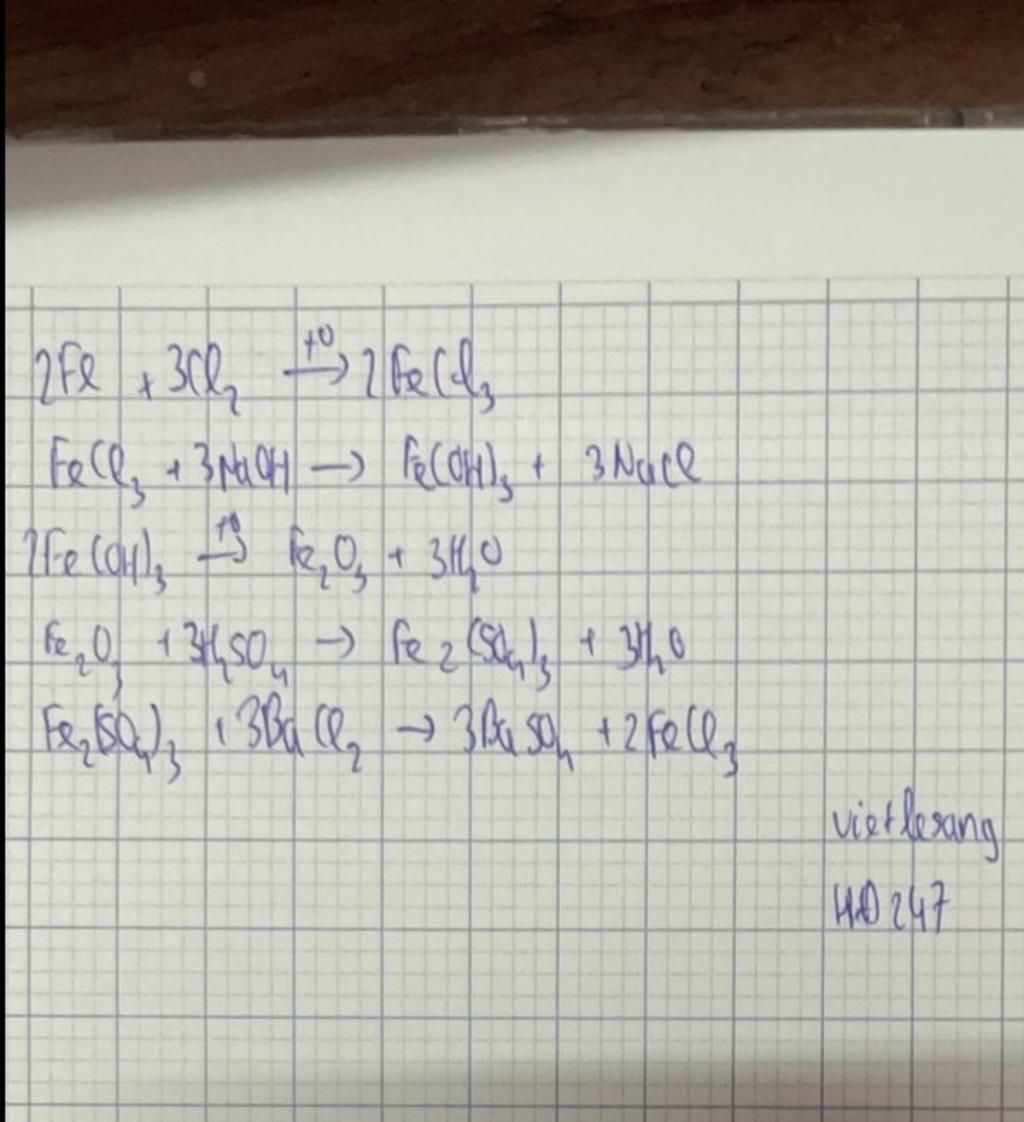 2Fe + 3Cl₂ →(t⁰) 2FeCl₃
FeCl₃ + 3NaOH → Fe(OH)₃ + 3NaCl
2Fe(OH)₃ →(t⁰) Fe₂O₃ + 3H₂O
Fe₂O₃ + 3H₂SO₄ → Fe₂(SO₄)₃ + 3H₂O
Fe₂(SO₄)₃ + 3BaCl₂ → 3BaSO₄ + 2FeCl₃
vietlesang
HĐ247